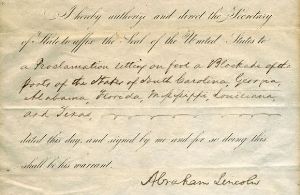 I hereby authorize and direct the Secretary
of State to affix the Seal of the United States to
a Proclamation setting on foot a Blockade of the
ports of the States of South Carolina, Georgia,
Alabama, Florida, Mississippi, Louisiana,
and Texas,
dated this day, and signed by me and for so doing this
shall be his warrant.
Abraham Lincoln